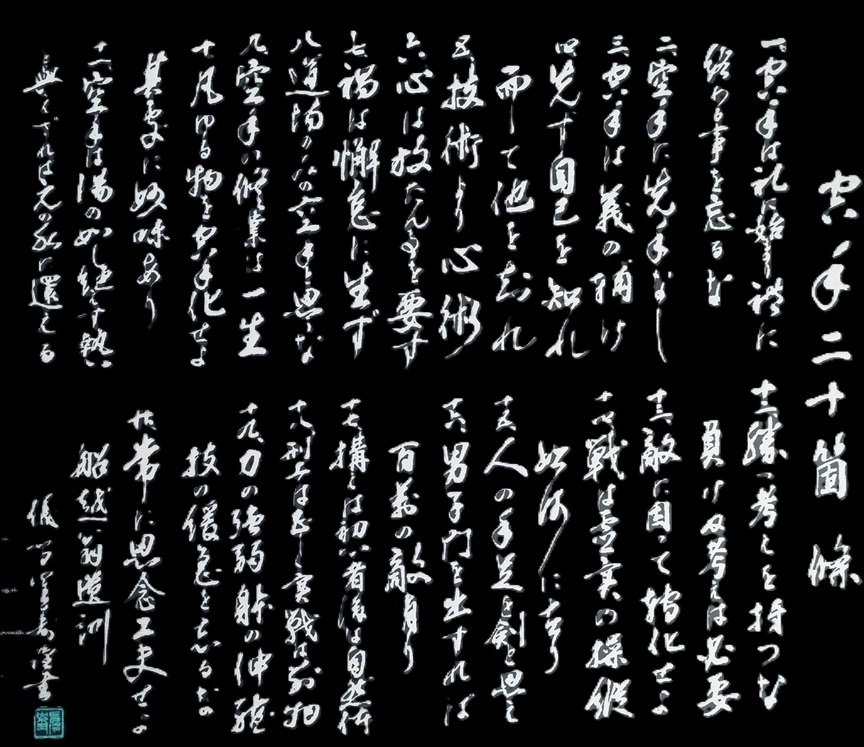 空手二十箇條
一、空手は礼に始り礼に
終わる事を忘るな
二、空手に先手なし
三、空手は義の補け
四、先ず自己を知れ
而して他を知れ
五、技術より心術
六、心は放たん事を要す
七、禍は懈怠に生ず
八、道場のみの空手と思うな
九、空手の修業は一生
十、凡ゆる物を空手化せよ
其処に妙味あり
十一、空手は湯の如し絶えず熱
無くずれば元の水に還える
十二、勝つ考えを持つな
負けぬ考えは必要
十三、敵に因って轉化せよ
十四、戦は虚実の操縦
如何に在り
十五、人の手足を剣と思え
十六、男子門を出ずれば
百萬の敵有り
十七、構えは初心者後は自然体
十八、型は正しく実戦は別物
十九、力の強弱体の伸縮
技の緩急を忘るな
二十、常に思念工夫せよ
船越義珍翁遺訓